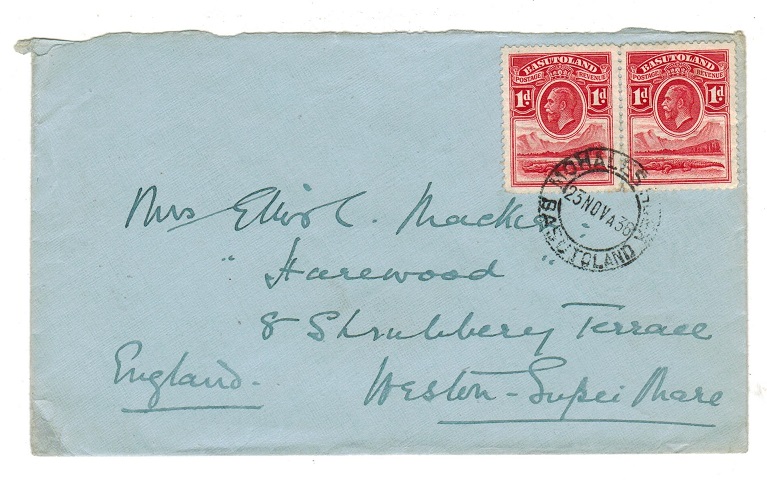 BASUTOLAND BASUTOLAND
POSTAGE REVENUE POSTAGE REVENUE
1d 1d 1d 1d
MOHALES
23 NOV A 36
BASUTOLAND
Mrs C.
"Harewood"
8 Shrubbery Terrace
Weston-Super Mare
England.